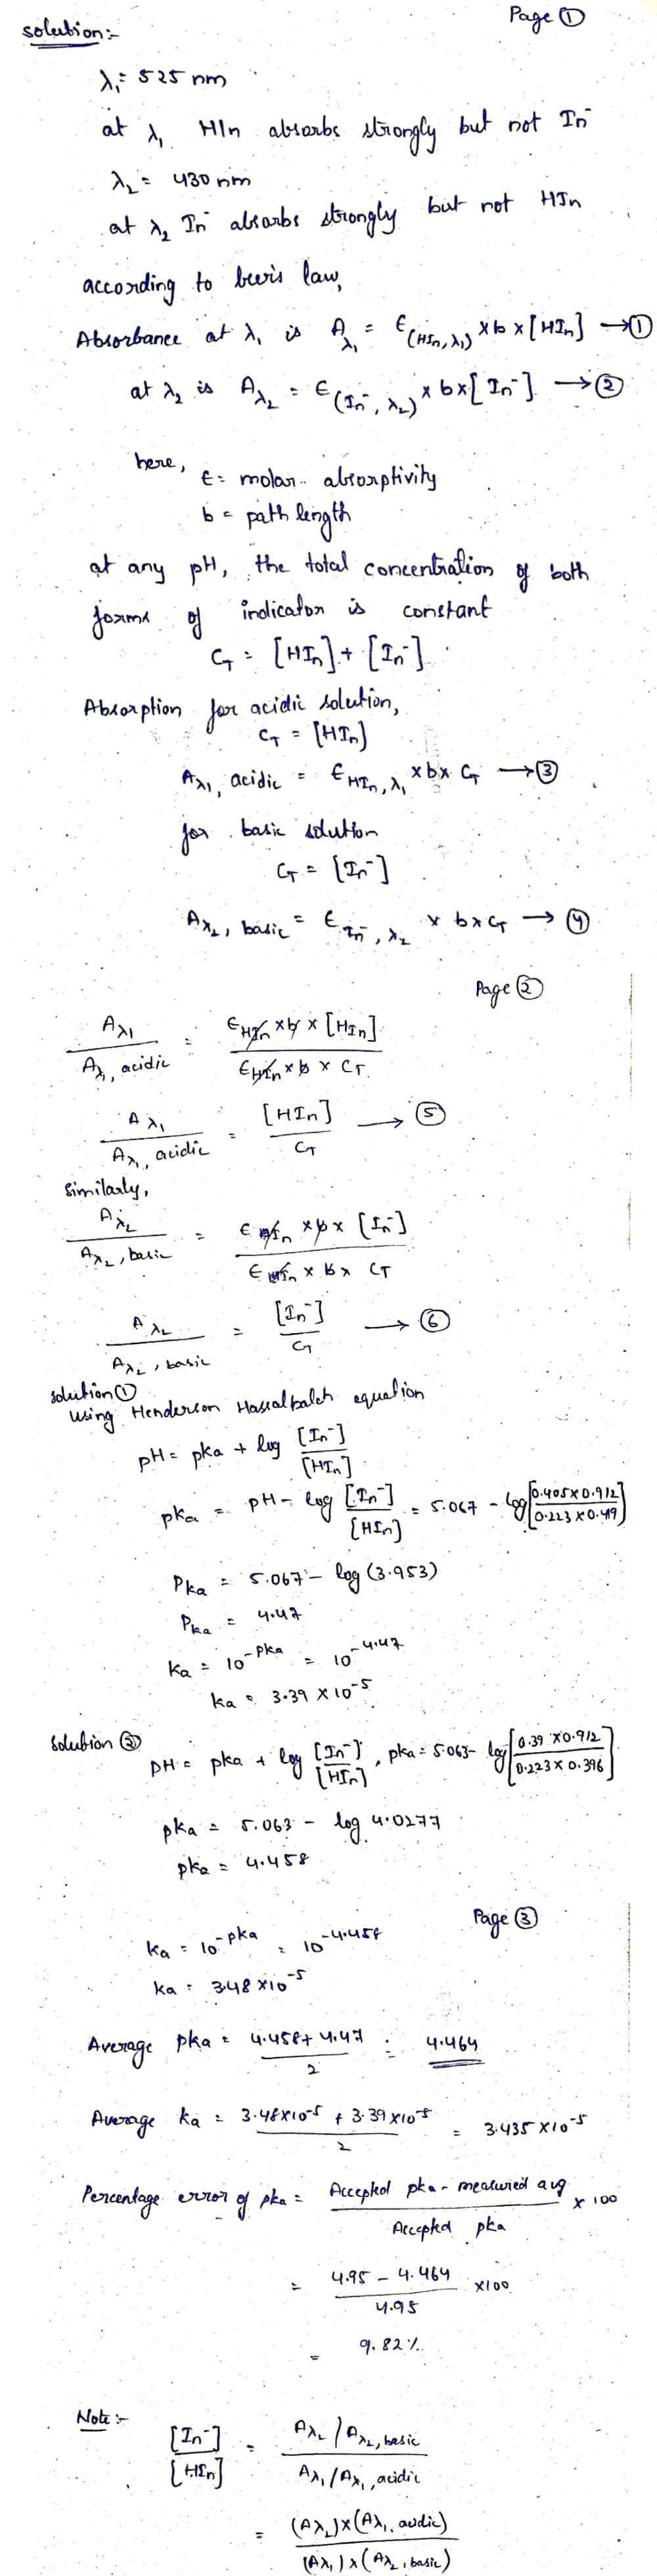 Page ①
solution:-
λ₁= 525 nm
at λ₁ HIn absorbs strongly but not In⁻
λ₂ = 430 nm
at λ₂ In⁻ absorbs strongly but not HIn
according to beer's law,
Absorbance at λ₁ is A_λ₁ = ε(HIn, λ₁) × b × [HIn] → ①
at λ₂ is A_λ₂ = ε(In⁻, λ₂) × b × [In⁻] → ②
here, ε = molar absorptivity
b = path length
at any pH, the total concentration of both
forms of indicator is constant
C_T = [HIn] + [In⁻]
Absorption for acidic solution,
C_T = [HIn]
A_λ₁, acidic = ε_HIn, λ₁ × b × C_T → ③
for basic solution
C_T = [In⁻]
A_λ₂, basic = ε_In⁻, λ₂ × b × C_T → ④
Page ②
A_λ₁ / A_λ₁, acidic = ε_HIn × b × [HIn] / ε_HIn × b × C_T
A_λ₁ / A_λ₁, acidic = [HIn] / C_T → ⑤
Similarly,
A_λ₂ / A_λ₂, basic = ε_In × b × [In⁻] / ε_In × b × C_T
A_λ₂ / A_λ₂, basic = [In⁻] / C_T → ⑥
solution ①
using Henderson Hasselbalch equation
pH = pka + log [In⁻] / [HIn]
pka = pH - log [In⁻] / [HIn] = 5.067 - log [0.405 × 0.912 / 0.223 × 0.419]
Pka = 5.067 - log (3.953)
Pka = 4.47
ka = 10^-pka = 10^-4.47
ka = 3.39 × 10⁻⁵
Solution ②
pH = pka + log [In⁻] / [HIn], pka = 5.063 - log [0.39 × 0.912 / 0.223 × 0.396]
pka = 5.063 - log 4.0277
pka = 4.458
Page ③
ka = 10^-pka = 10^-4.458
ka = 3.48 × 10⁻⁵
Average pka = 4.458 + 4.47 / 2 = 4.464
Average ka = 3.48×10⁻⁵ + 3.39×10⁻⁵ / 2 = 3.435 × 10⁻⁵
Percentage error of pka = Accepted pka - measured avg / Accepted pka × 100
= 4.95 - 4.464 / 4.95 × 100
= 9.82 %
Note :-
[In⁻] / [HIn] = A_λ₂ / A_λ₂, basic / A_λ₁ / A_λ₁, acidic
= (A_λ₂) × (A_λ₁, acidic) / (A_λ₁) × (A_λ₂, basic)